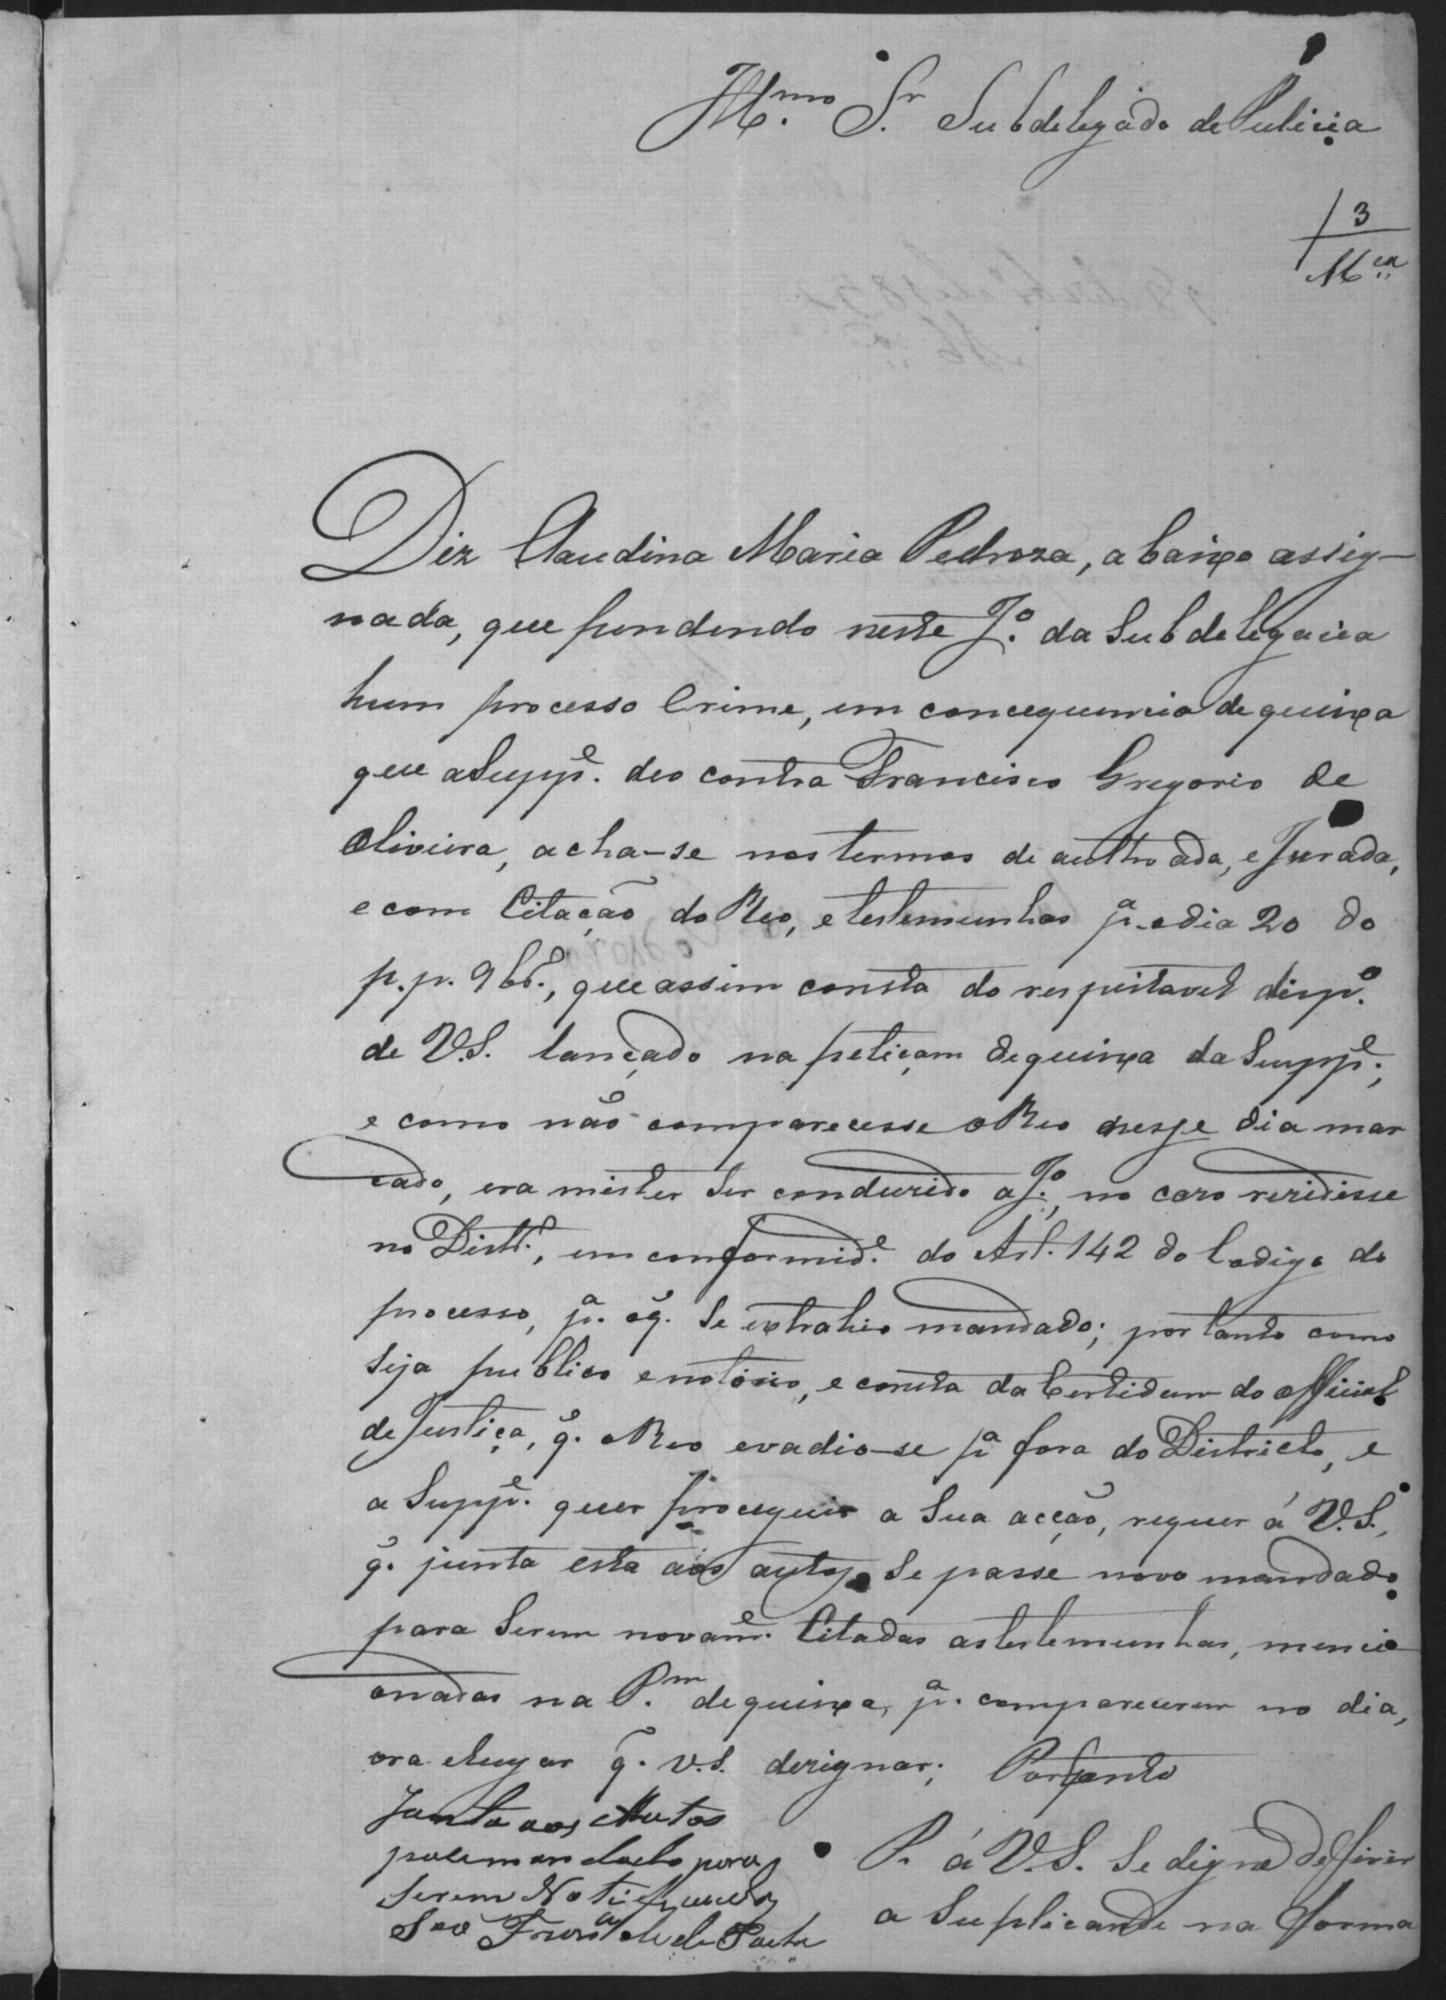 Ill.mo Sr. Subdelegado de Pulicia
3
M.ca
Diz Claudina Maria Pedroza, abaixo assig-
nada, que pendendo neste J.o da Subdelegacia
hum processo Crime, em concequencia de queixa
que a Supp.e deo contra Francisco Gregorio de
Oliveira, acha-se nos termos de authoada, e Jurada,
e com Citação do Reo, e testemunhas p.a o dia 20 do
p.p. 9br.o, que assim consta do respeitavel desp.o
de V.S. lançado na petiçam de queixa da Supp.e;
e como não comparecesse o Reo nesse dia mar
cado, era mister ser conduzido a J.o, no cazo rezidisse
no Distr.o, em conformid.e do Art. 142 do Codigo do
processo, p.a o q. se extrahio mandado; portanto como
seja publico e notorio, e consta da Certidam do official
de Justiça, q. o Reo evadio-se p.a fora do Districto, e
a Supp.e quer proceguir a sua acção, requer á V.S.,
q. junta esta aos autos, se passe novo mandado
para serem novam.e Citadas as testemunhas, menci
onadas na P.m de queixa, p.a comparecerem no dia,
ora e lugar q. V.S. dezignar; Portanto
Junta aos Autos
pace mandado para
serem Notificadas
São Fran.co
P. á V.S. se digne defirir
a Suplicante na forma